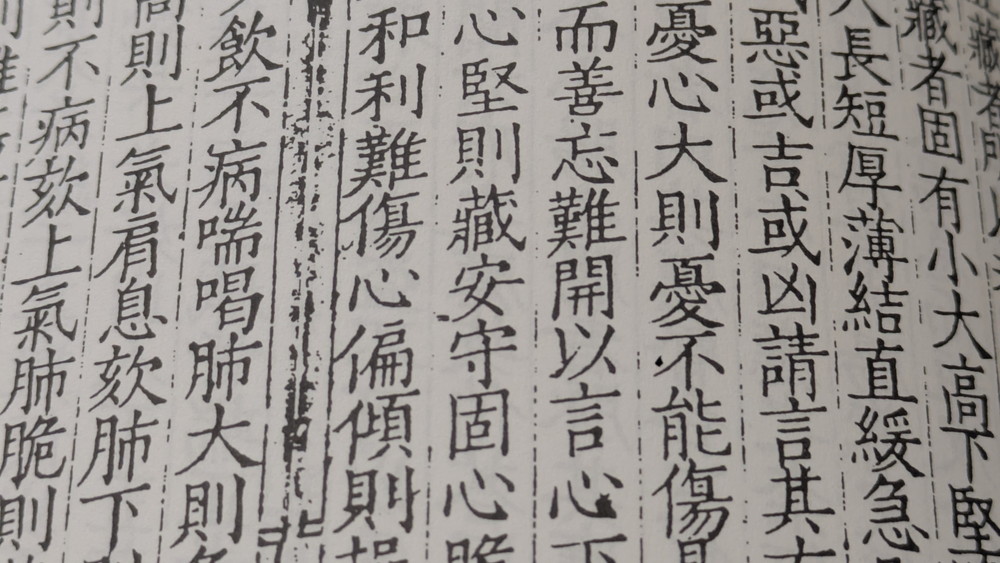 藏者
藏者固有小大高下堅
長短厚薄結直緩急
惡或吉或凶請言其
憂心大則憂不能傷
而善忘難開以言心下
心堅則藏安守固心脆
和利難傷心偏傾則
飲不病喘喝肺大則
高則上氣肩息欬肺下
則不病欬上氣肺脆則